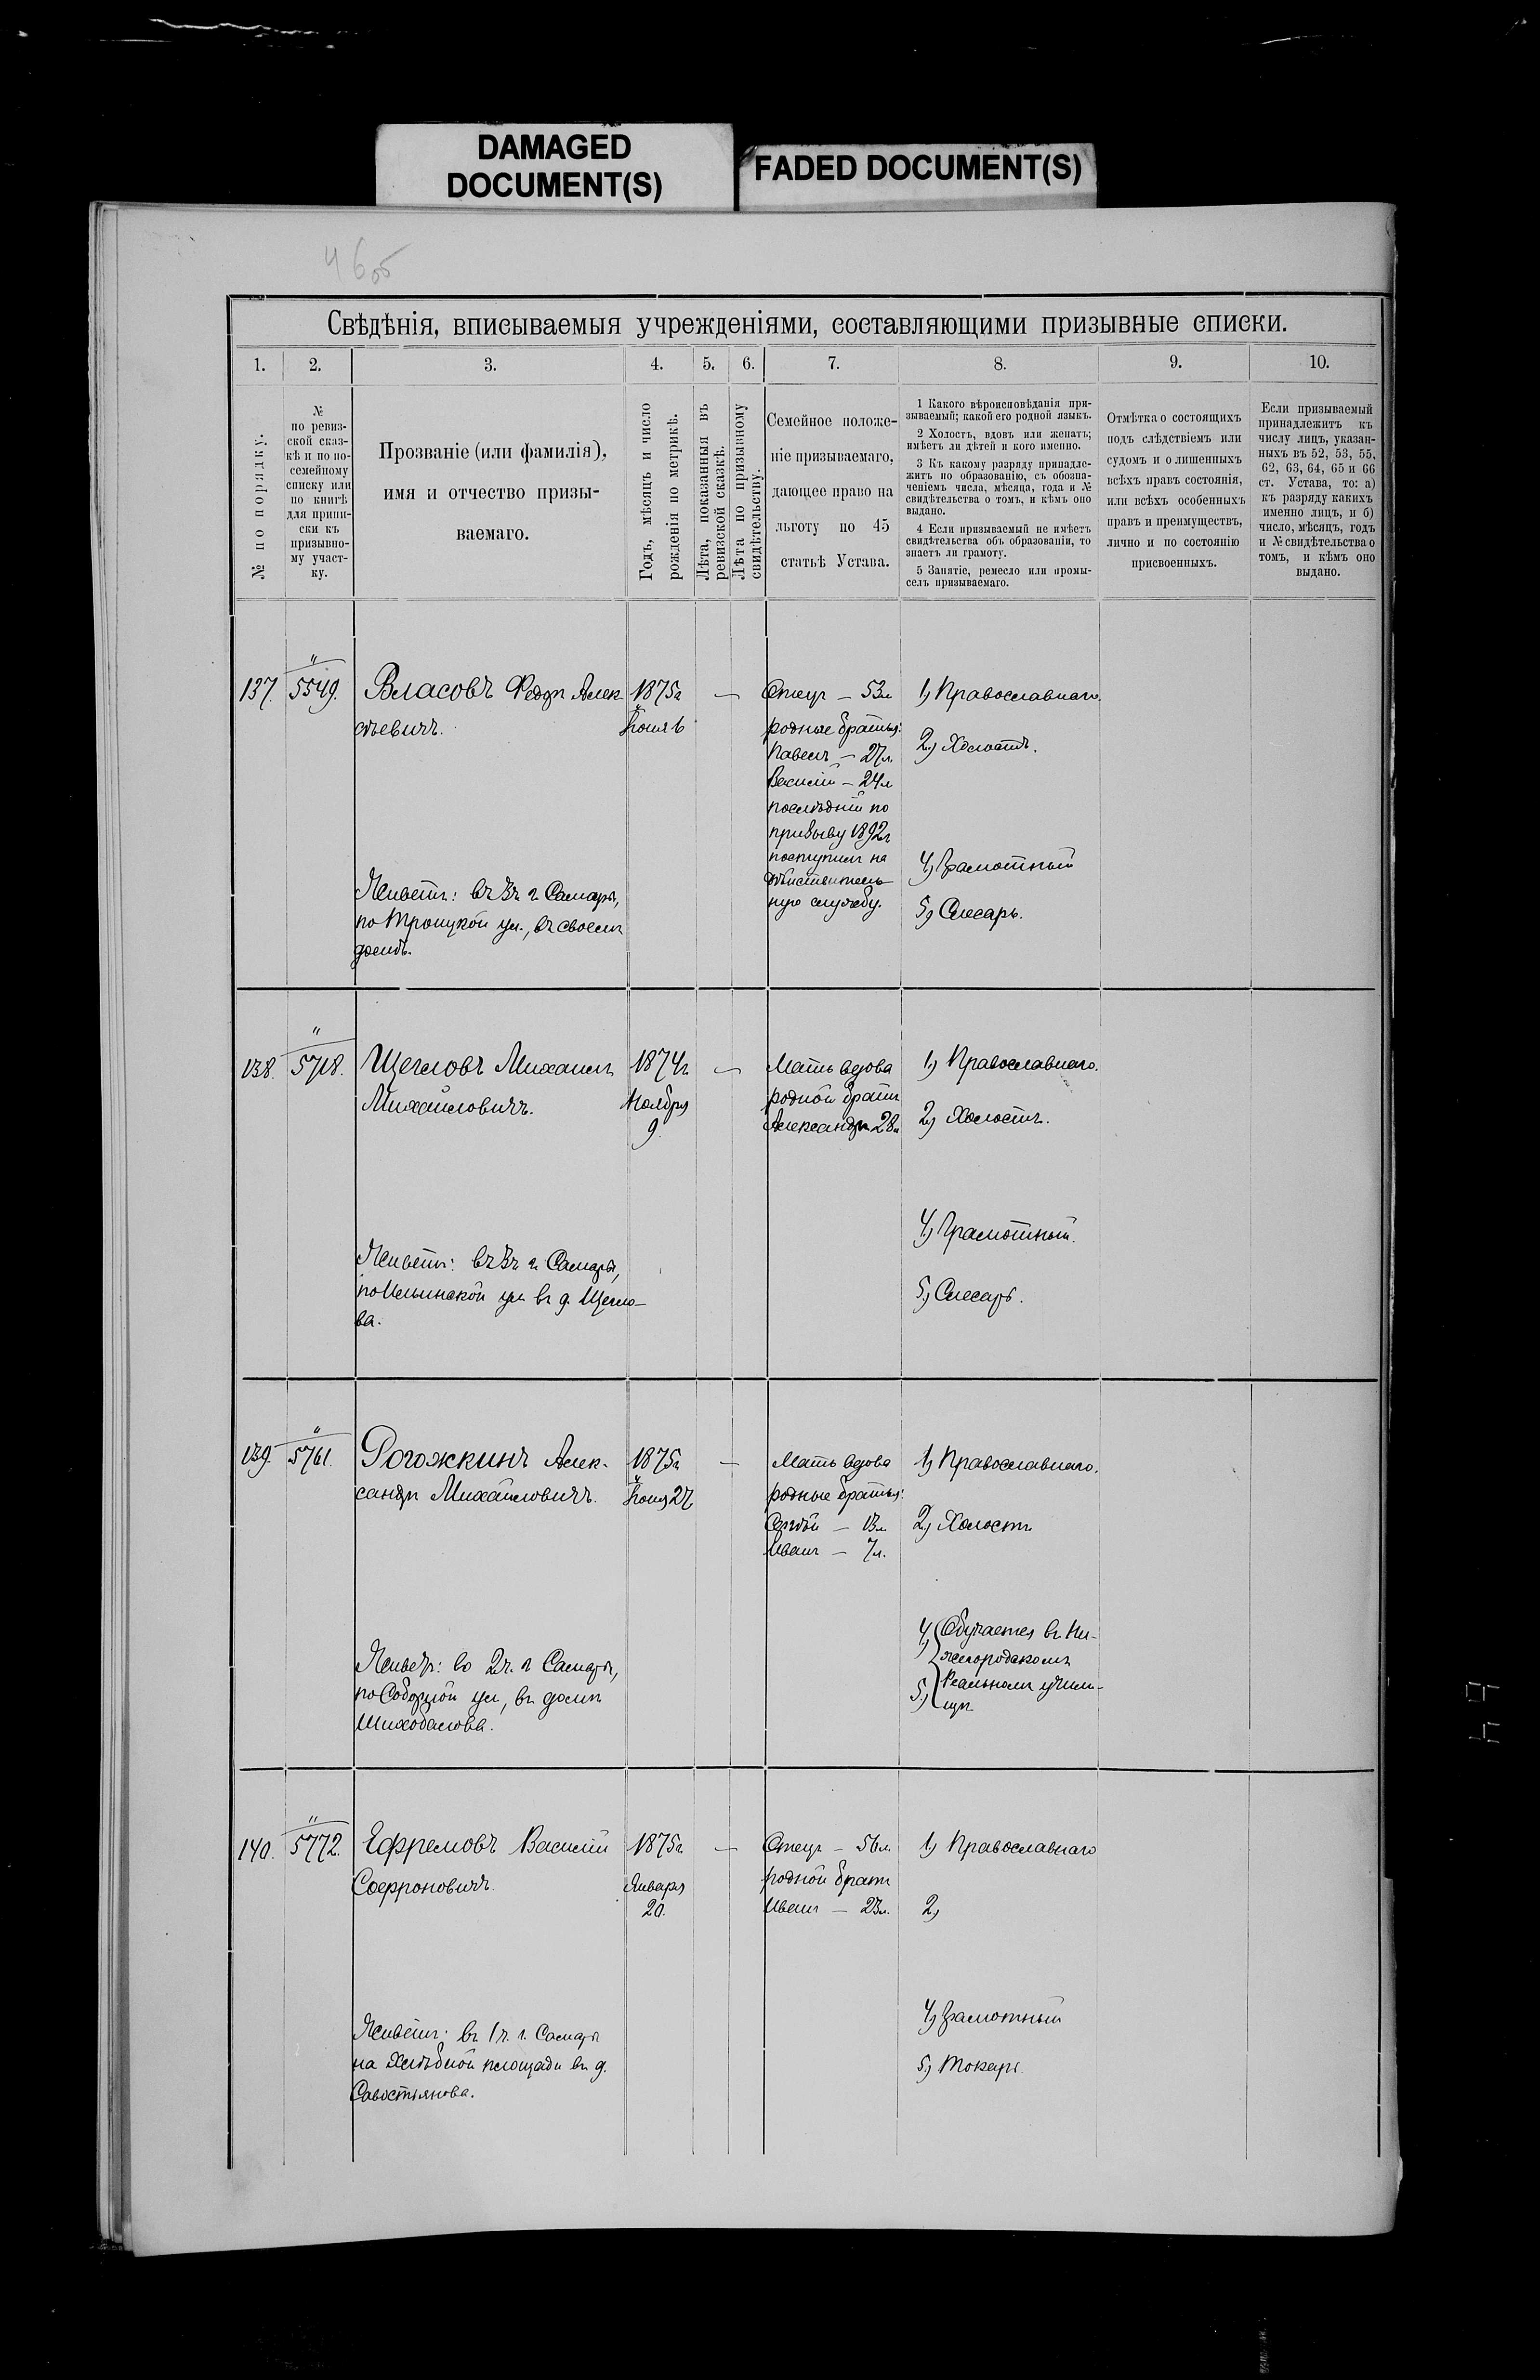 DAMAGED
DOCUMENT(S)
FADED DOCUMENT(S)
46об
Свѣдѣнія, вписываемыя учрежденіями, составляющими призывные списки.
1. 2. 3. 4. 5. 6. 7. 8. 9. 10.
№ по порядку.
№
по ревиз-
ской сказ-
кѣ и по по-
семейному
списку или
по книгѣ
для припи-
ски къ
призывно-
му участ-
ку.
Прозваніе (или фамилія),
имя и отчество призы-
ваемаго.
Годъ, мѣсяцъ и число
рожденія по метрикѣ.
Лѣта, показанныя въ
ревизской сказкѣ.
Лѣта по призывному
свидѣтельству.
Семейное положе-
ніе призываемаго,
дающее право на
льготу по 45
статьѣ Устава.
1 Какого вѣроисповѣданія при-
зываемый; какой его родной языкъ.
2 Холостъ, вдовъ или женатъ;
имѣетъ ли дѣтей и кого именно.
3 Къ какому разряду принадле-
житъ по образованію, съ обозна-
ченіемъ числа, мѣсяца, года и №
свидѣтельства о томъ, и кѣмъ оно
выдано.
4 Если призываемый не имѣетъ
свидѣтельства объ образованіи, то
знаетъ ли грамоту.
5 Занятіе, ремесло или промы-
селъ призываемаго.
Отмѣтка о состоящихъ
подъ слѣдствіемъ или
судомъ и о лишенныхъ
всѣхъ правъ состоянія,
или всѣхъ особенныхъ
правъ и преимуществъ,
лично и по состоянію
присвоенныхъ.
Если призываемый
принадлежитъ къ
числу лицъ, указан-
ныхъ въ 52, 53, 55,
62, 63, 64, 65 и 66
ст. Устава, то: а)
къ разряду какихъ
именно лицъ, и б)
число, мѣсяцъ, годъ
и № свидѣтельства о
томъ, и кѣмъ оно
выдано.
137. " 5549.
Власовъ Федоръ Алек-
сѣевичъ.
1875г
Іюня 6
—
Отецъ – 53л
родные братья:
Павелъ – 27л.
Василій – 24л
послѣдній по
призыву 1892г
поступилъ на
дѣйствитель-
ную службу.
1) Православнаго.
2) Холостъ.
4) Грамотный
5) Слесарь.
Живетъ: въ 3ч г. Самары,
по Троицкой ул., въ своемъ
домѣ.
138. " 5718.
Щегловъ Михаилъ
Михайловичъ.
1874г
Ноября
9.
—
Мать вдова
родной братъ
Александръ 28л
1) Православнаго.
2) Холостъ.
4) Грамотный.
5) Слесарь.
Живетъ: въ 3ч г. Самары,
по Ильинской ул въ д. Щегло-
ва.
139. " 5761.
Рогожкинъ Алек-
сандръ Михайловичъ.
1875г
Іюня 27
—
Мать вдова
родные братья:
Сергѣй – 13л
Иванъ – 7л.
1) Православнаго.
2) Холостъ
4) Обучается въ Ни-
жегородскомъ
5) Реальномъ учили-
щѣ.
Живетъ: во 2ч. г. Самары,
по Соборной ул, въ домѣ
Шихобалова.
140. " 5772.
Ефремовъ Василій
Софроновичъ.
1875г
Января
20.
—
Отецъ – 56л
родной братъ
Иванъ – 23л.
1) Православнаго
2)
4) Грамотный
5) Токарь.
Живетъ: въ 1ч. г. Самары
на Хлѣбной площади въ д.
Савостьянова.